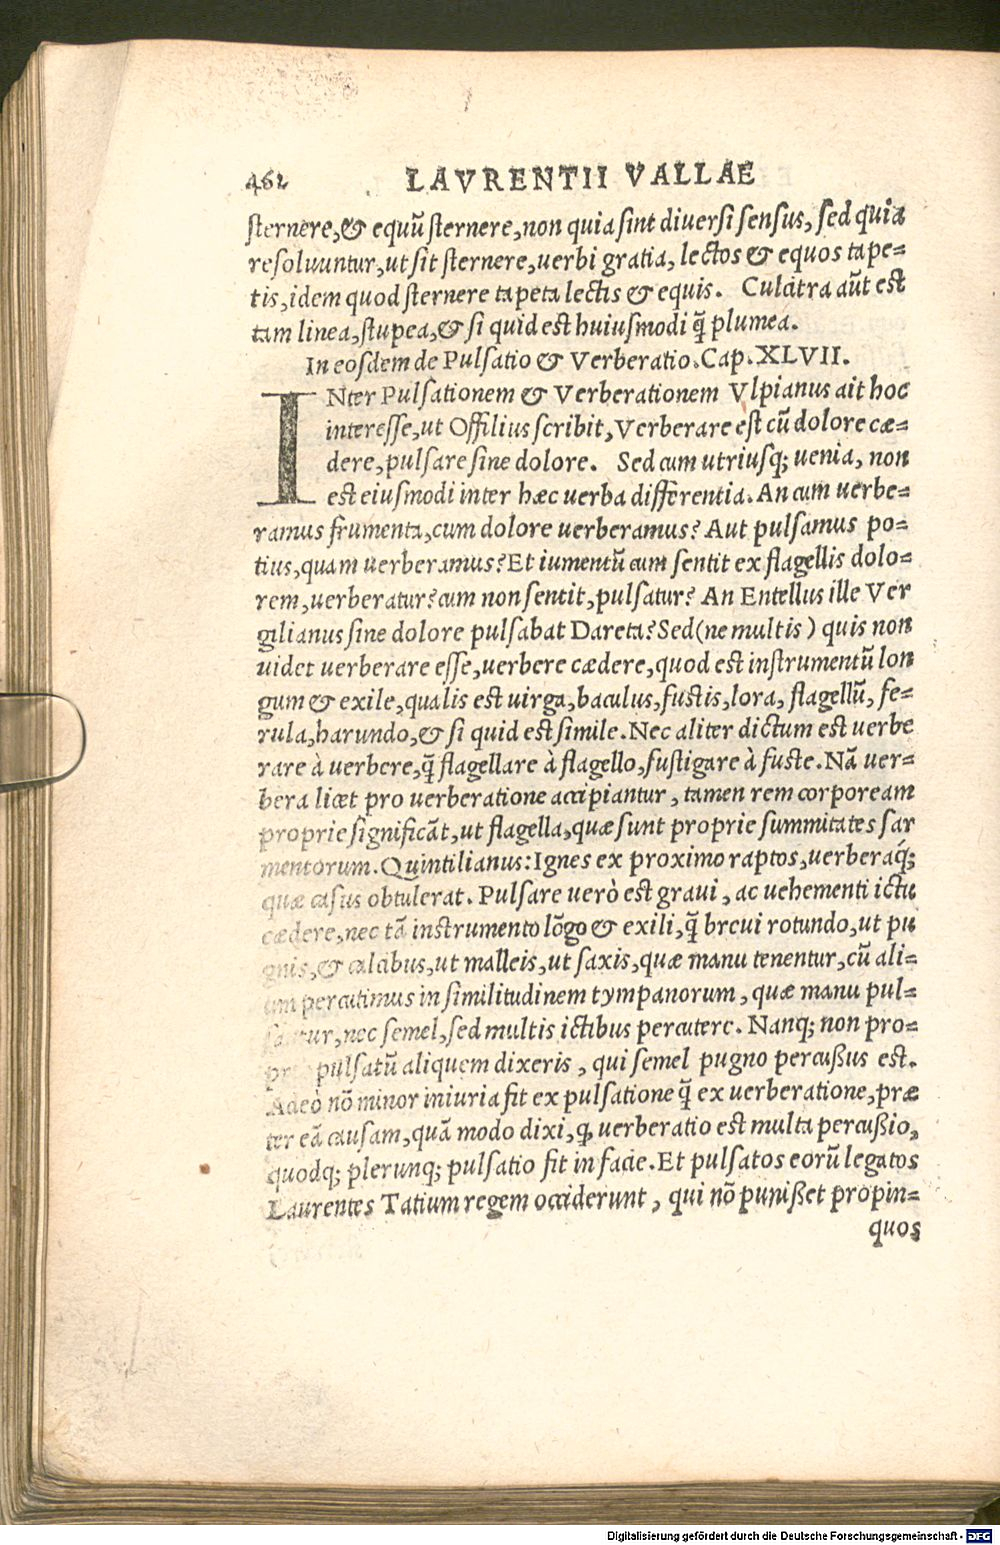 462 LAVRENTII VALLAE
sternere,& equũ sternere,non quia sint diuersi sensus, sed quia
resoluuntur,ut sit sternere,uerbi gratia, lectos & equos tape=
tis,idem quod sternere tapeta lectis & equis. Culcitra aũt est
tam linea,stupea,& si quid est huiusmodi q̃ plumea.
In eosdem de Pulsatio & Verberatio.Cap.XLVII.
INter Pulsationem & Verberationem Vlpianus ait hoc
interesse,ut Offilius scribit,Verberare est cũ dolore cæ=
dere,pulsare sine dolore. Sed cum utriusq; uenia, non
est eiusmodi inter hæc uerba differentia.An cum uerbe=
ramus frumenta,cum dolore uerberamus? Aut pulsamus po=
tius,quam uerberamus?Et iumentũ cum sentit ex flagellis dolo=
rem,uerberatur?cum non sentit,pulsatur? An Entellus ille Ver
gilianus sine dolore pulsabat Dareta?Sed(ne multis) quis non
uidet uerberare esse,uerbere cædere,quod est instrumentũ lon
gum & exile,qualis est uirga,baculus,fustis,lora, flagellũ, fe=
rula,harundo,& si quid est simile.Nec aliter dictum est uerbe
rare à uerbere,q̃ flagellare à flagello,fustigare à fuste.Nã uer=
bera licet pro uerberatione accipiantur, tamen rem corpoream
proprie significãt,ut flagella,quæ sunt proprie summitates sar
mentorum.Quintilianus:Ignes ex proximo raptos,uerberaq́;
quæ casus obtulerat.Pulsare uerò est graui, ac uehementi ictu
cædere,nec tã instrumento lõgo & exili,q̃ breui rotundo,ut pu
gnis,& calcibus,ut malleis,ut saxis,quæ manu tenentur,cũ ali=
um percutimus in similitudinem tympanorum, quæ manu pul=
santur,nec semel,sed multis ictibus percutere. Nanq; non pro=
pulsatũ aliquem dixeris, qui semel pugno percußus est.
Adeò nõ minor iniuria fit ex pulsatione q̃ ex uerberatione,præ
ter eã causam,quã modo dixi,q̨ uerberatio est multa percußio,
quodq; plerunq; pulsatio fit in facie.Et pulsatos eorũ legatos
Laurentes Tatium regem occiderunt, qui nõ punißet propin=
quos
Digitalisierung gefördert durch die Deutsche Forschungsgemeinschaft - DFG